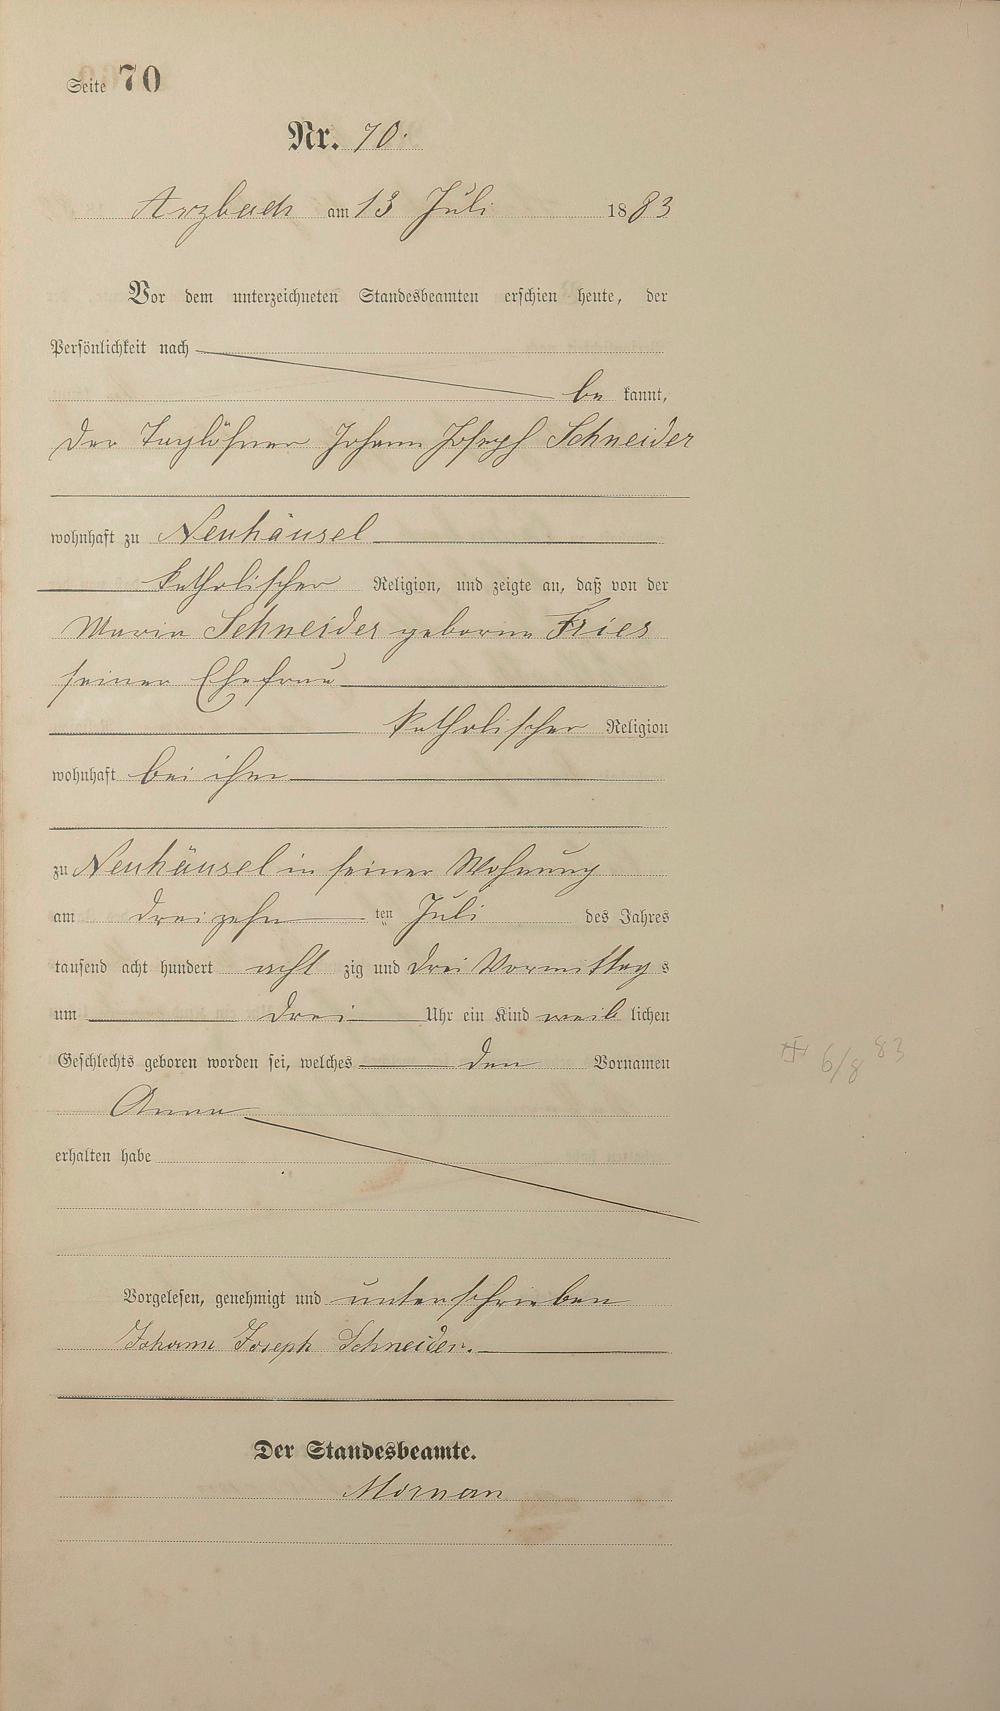 Seite 70
Nr. 70.
Arzbach am 13 Juli 1883
Vor dem unterzeichneten Standesbeamten erschien heute, der
Persönlichkeit nach
be kannt,
der Taglöhner Johann Joseph Schneider
wohnhaft zu Neuhäusel
katholischer Religion, und zeigte an, daß von der
Maria Schneider geborne Fries
seiner Ehefrau
katholischer Religion
wohnhaft bei ihm
zu Neuhäusel in seiner Wohnung
am dreizehn ten Juli des Jahres
tausend acht hundert acht zig und drei Vormittag s
um drei Uhr ein Kind weib lichen
Geschlechts geboren worden sei, welches den Vornamen
6/8 83
Anna
erhalten habe
Vorgelesen, genehmigt und unterschrieben
Johann Joseph Schneider.
Der Standesbeamte.